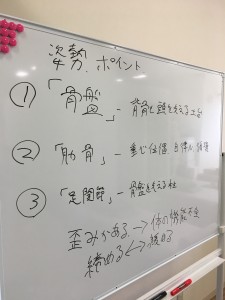 姿勢 ポイント
① 「骨盤」 - 背骨と頭を支える土台
② 「肋骨」 - 重心位置、自律神経
③ 「足関節」 - 骨盤を支える柱
歪みがある → 体の機能不全
締める ↔ 緩める